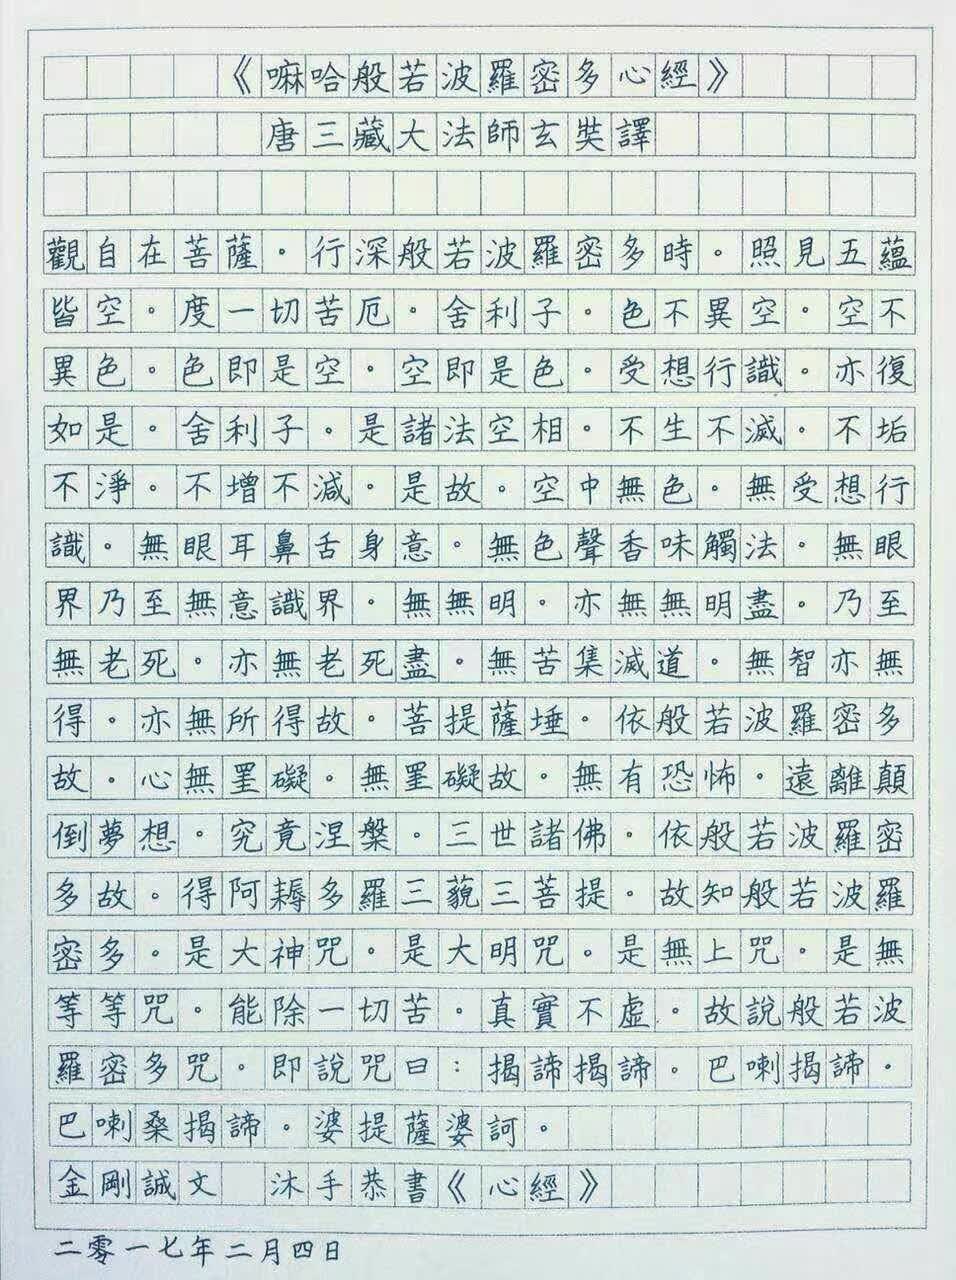 《嘛哈般若波羅密多心經》
唐三藏大法師玄奘譯
觀自在菩薩。行深般若波羅密多時。照見五蘊
皆空。度一切苦厄。舍利子。色不異空。空不
異色。色即是空。空即是色。受想行識。亦復
如是。舍利子。是諸法空相。不生不滅。不垢
不淨。不增不減。是故。空中無色。無受想行
識。無眼耳鼻舌身意。無色聲香味觸法。無眼
界乃至無意識界。無無明。亦無無明盡。乃至
無老死。亦無老死盡。無苦集滅道。無智亦無
得。亦無所得故。菩提薩埵。依般若波羅密多
故。心無罣礙。無罣礙故。無有恐怖。遠離顛
倒夢想。究竟涅槃。三世諸佛。依般若波羅密
多故。得阿耨多羅三藐三菩提。故知般若波羅
密多。是大神咒。是大明咒。是無上咒。是無
等等咒。能除一切苦。真實不虛。故說般若波
羅密多咒。即說咒曰：揭諦揭諦。巴喇揭諦。
巴喇桑揭諦。婆提薩婆訶。
金剛誠文 沐手恭書《心經》
二零一七年二月四日